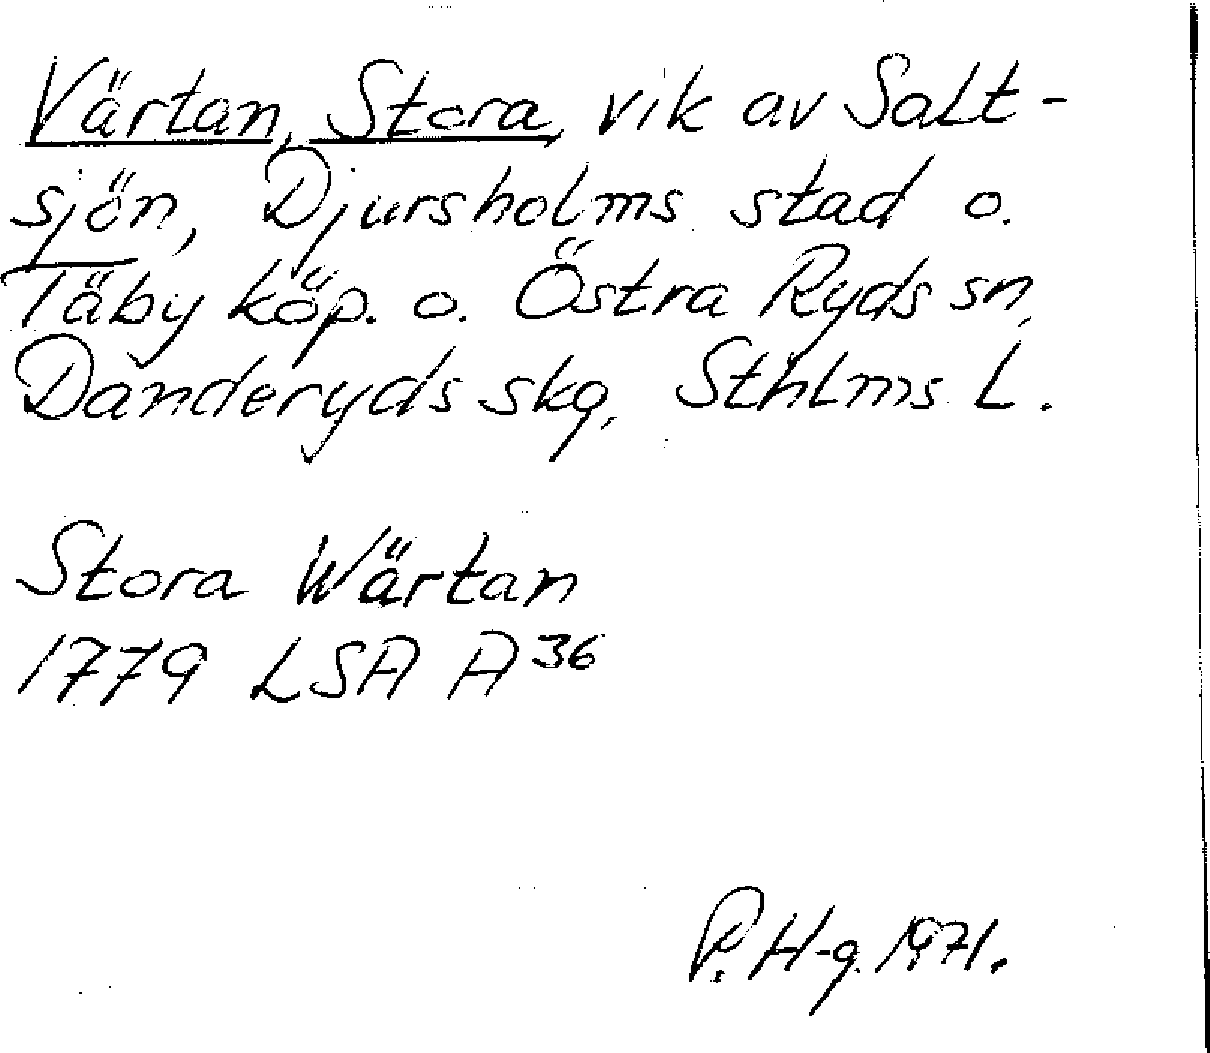 Värtan, Stora, vik av Salt-
sjön, Djursholms stad o.
Täby köp. o. Östra Ryds sn,
Danderyds skg, Sthlms l.
Stora Wärtan
1779 LSA A 36
P. H-g. 1971.